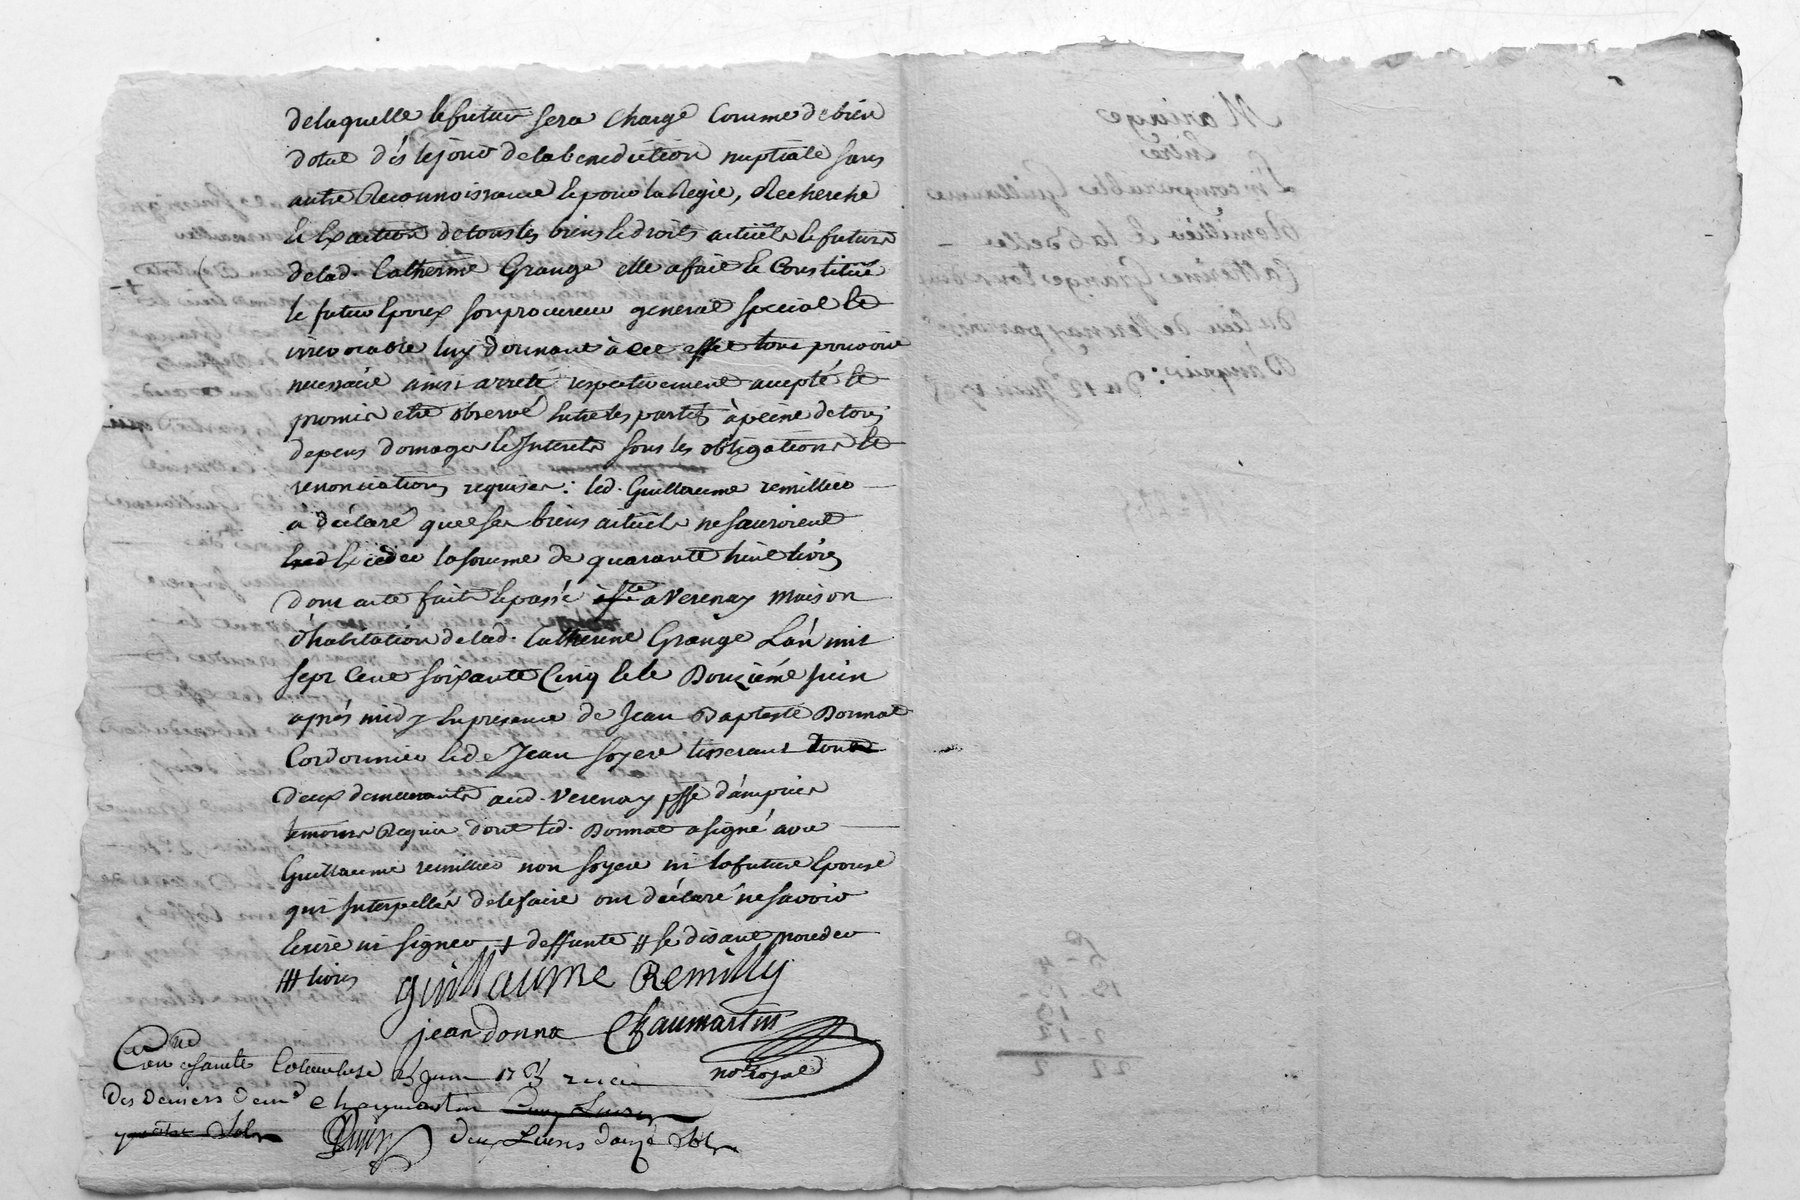 delaquelle le futur sera chargé comme de bien
dotal dés le jour de la benediction nuptiale sans
autre Reconnoissance et pour la Regie, Recherche
et Exaction de tous les biens et droits actuels et futurs
de lad. Catherine Grange elle a fait et Constitué
le futur Epoux son procureur general special et
irrevocable luy donnant à cet effet tous pouvoirs
necessaire ainsi arreté respectivement accepté et
promis etre observé Entre les parties à peine de tous
depens domages et Interets sous les obligations et
renonciations requises : led. Guillaume remillieu
a déclaré que ses biens actuels ne sauroient
Exceder la somme de quarante huit livres
dont acte fait et passé a Verenay maison
d'habitation de lad. Catherine Grange L'an mil
sept Cent soixante Cinq et le Douziéme juin
aprés midy En presence de Jean Baptiste Donnat
Cordonnier et de Jean soyere tisserant tous
deux demeurants aud. Verenay psse d'ampuis
temoins Requis dont led. Donnat a signé avec
Guillaume remillieu non soyere ni la future Epouse
qui Interpellés de le faire ont déclaré ne savoir
Ecrire ni signer + deffunte # se disant
livres
guillaume Remilly
jean donna Chaumartin
not. royal
sainte Colombe juin
Des deniers dem. chaumartin
deux Livres douze sols
Mariage
Entre
Guillaume
Remillieu et la
Catherine Grange
du lieu de Verenay paroisse
D'ampuis : Du 12 Juin
2 - 12
22 2